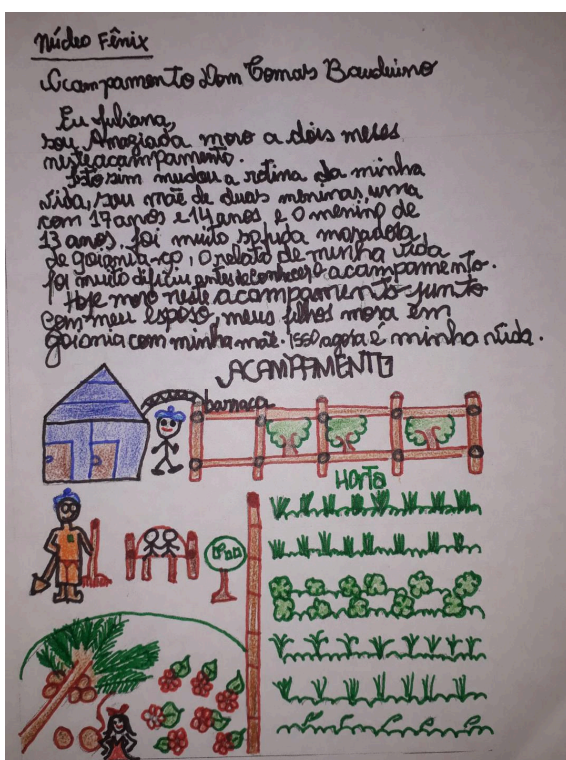 Núcleo Fênix
Acampamento Dom Tomats Bauduino
Eu Juliana,
sou Amaziada moro a dois meses
neste acampamento.
Isto sim mudou a rotina da minha
vida, sou mãe de duas meninas, uma
com 17 anos e 14 anos, e o menino de
13 anos, foi muito sofrida moradora,
de goiania-go, o relato de minha vida
foi muito dificiu antes de conhecer o acampamento.
Hoje moro neste acampamento junto
com meu esposo, meus filhos mora em
goiania com minha mãe. isso agora é minha vida.
ACAMPAMENTO
barraca
HORTA